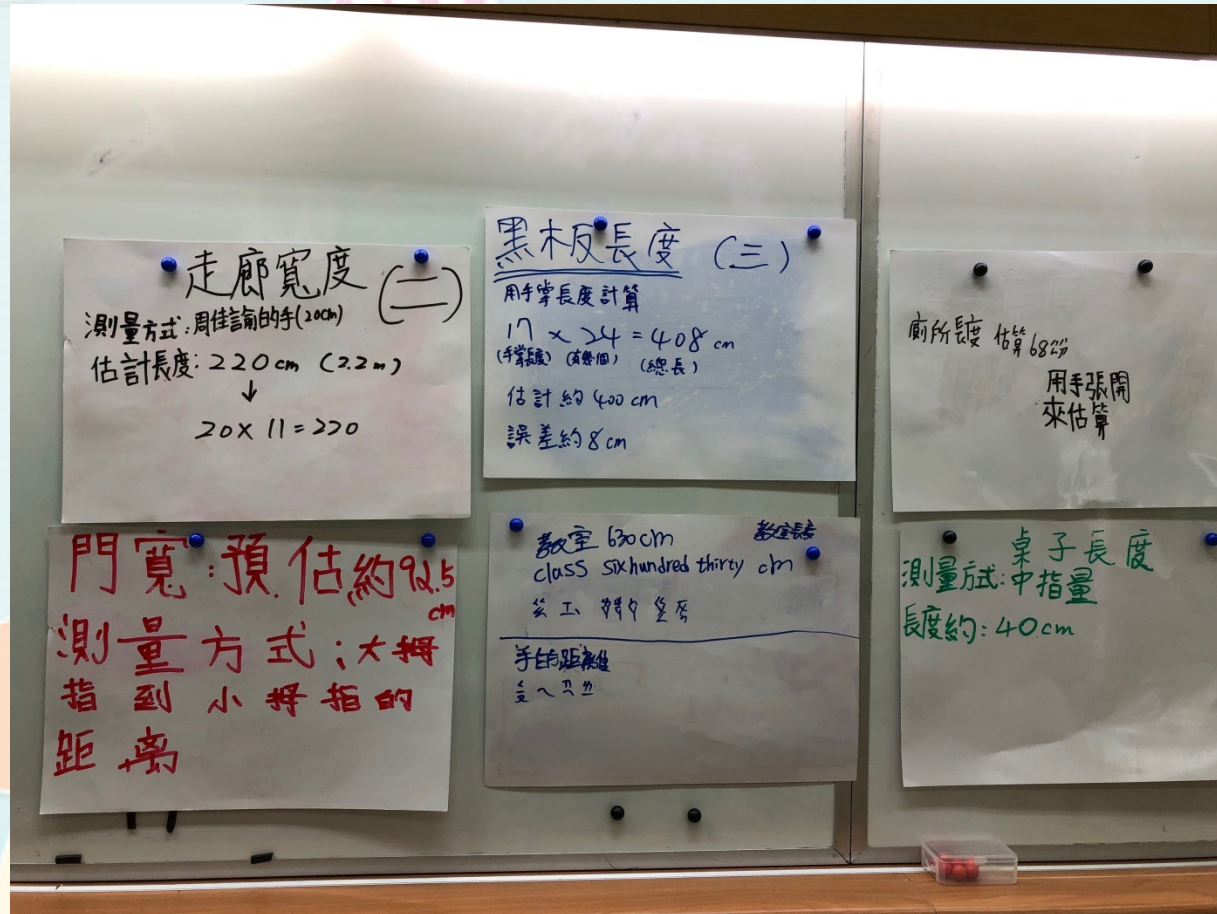 走廊寬度 (二)
測量方式:周佳諭的手(20cm)
估計長度:220cm (2.2m)
↓
20×11=220
黑板長度 (三)
用手掌長度計算
17 × 24 = 408 cm
(手掌長度) (有幾個) (總長)
估計約400cm
誤差約8cm
廁所長度 估算68
用手張開
來估算
門寬:預估約92.5
cm
測量方式:大拇
指到小拇指的
距离
教室 630cm 教室長度
class six hundred thirty cm
手的距離
桌子長度
測量方式:中指量
長度約:40cm